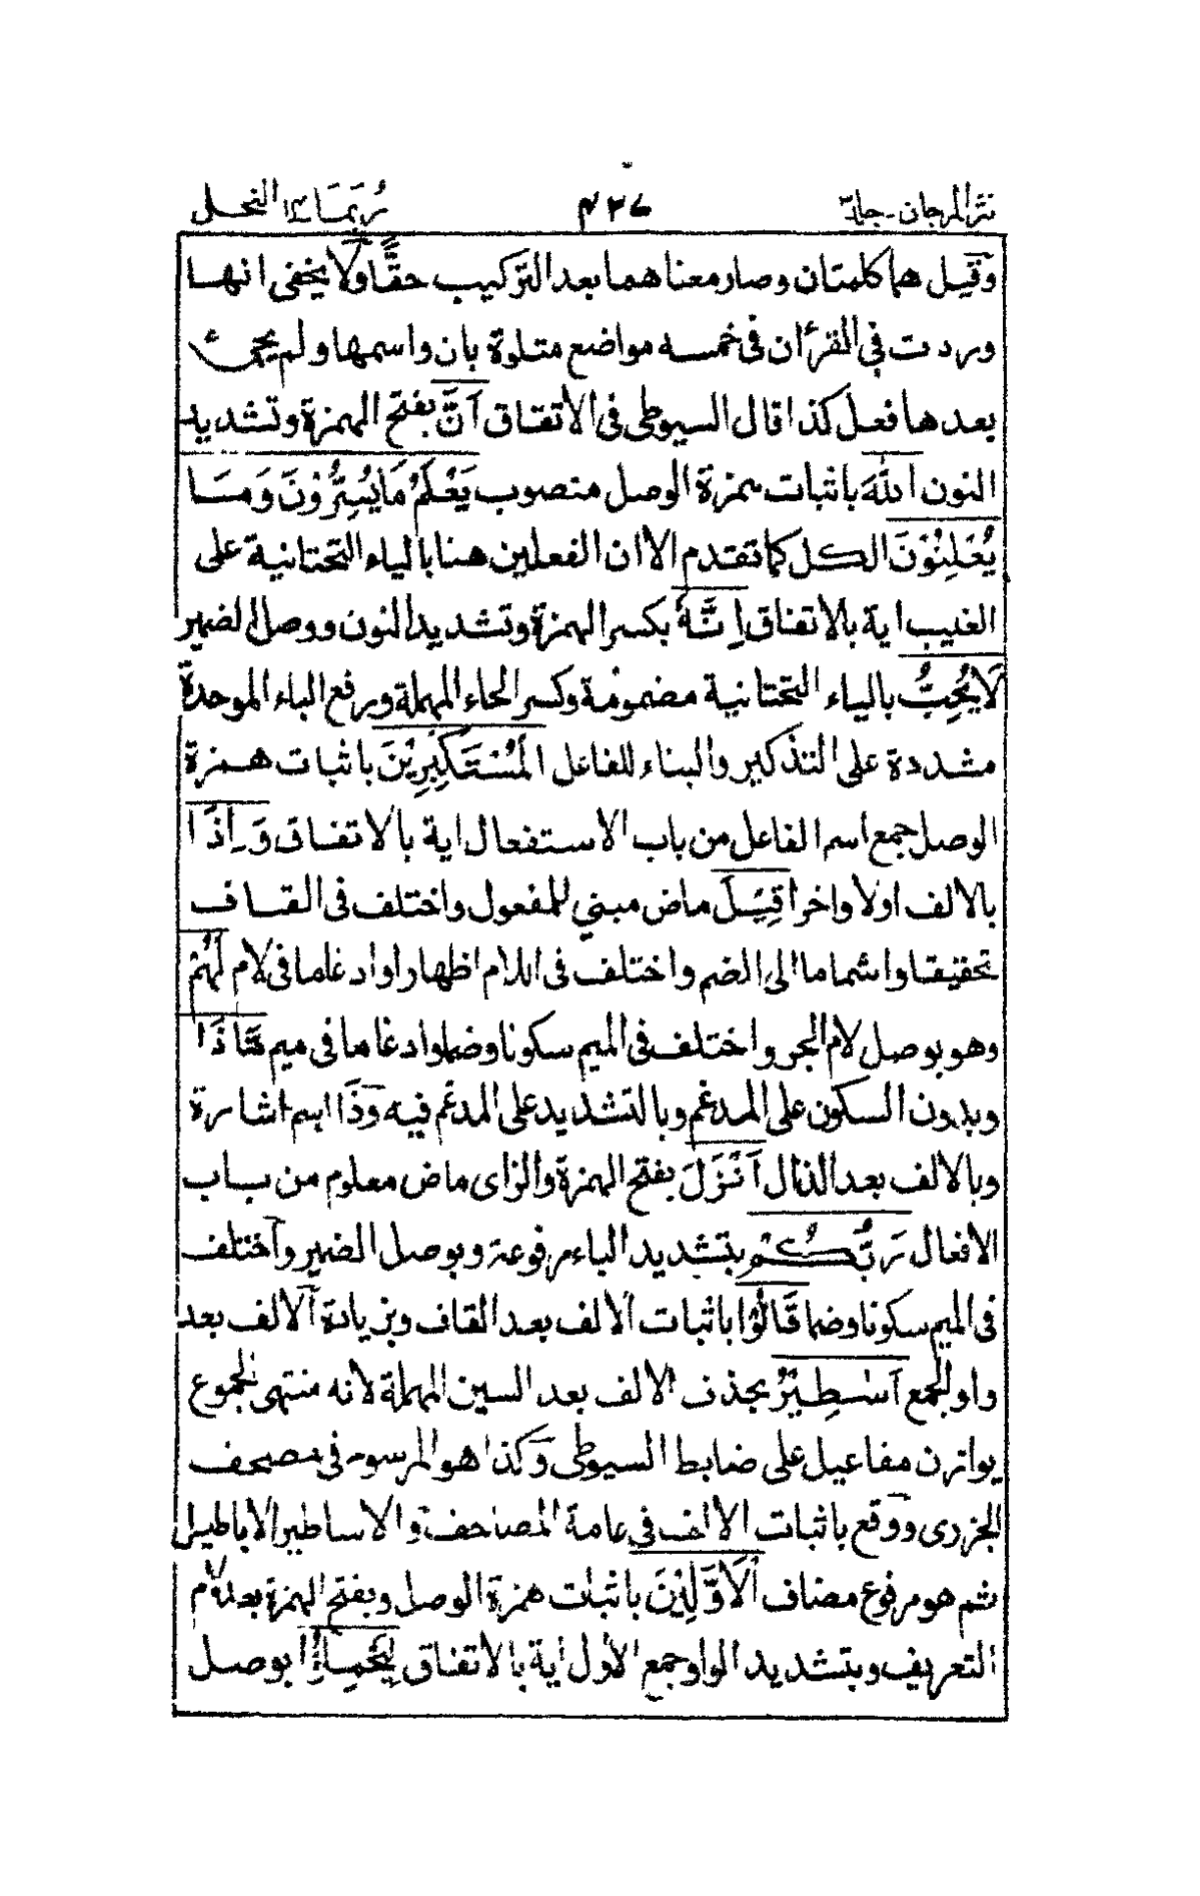 نثر المرجان - جلد ٣ ٤٣٧ رُبَمَا ١٤ النحل
وقيل هما كلمتان وصار معناهما بعد التركيب حقًّا ولا يخفى انها
وردت في القرءان فى خمسة مواضع متلوة بان واسمها ولم يجئ
بعدها فعل كذا قال السيوطى فى الاتقان اَنَّ بفتح الهمزة وتشديد
النون اللهَ باثبات همزة الوصل منصوب يَعْلَمُ مَا يُسِرُّوْنَ وَمَا
يُعْلِنُوْنَ الكل كما تقدم الا ان الفعلين هنا بالياء التحتانية على
الغيب اية بالاتفاق اِنَّهُ بكسر الهمزة وتشديد النون ووصل الضمير
لَا يُحِبُّ بالياء التحتانية مضمومة وكسر الحاء المهملة ورفع الباء الموحدة
مشددة على التذكير والبناء للفاعل الْمُسْتَكْبِرِيْنَ باثبات همزة
الوصل جمع اسم الفاعل من باب الاستفعال اية بالاتفاق وَاِذَا
بالالف اولا واخرا قِيْلَ ماض مبني للمفعول واختلف فى القاف
تحقيقا واشماما الى الضم واختلف فى اللام اظهارا وادغاما فى لام لَهُمْ
وهو بوصل لام الجر واختلف فى الميم سكونا وضما وادغاما فى ميم مَّاذَا
وبدون السكون على المدغم وبالتشديد على المدغم فيه وَذَا اسم اشارة
وبالالف بعد الذال اَنْزَلَ بفتح الهمزة والزاى ماض معلوم من باب
الافعال رَبُّكُمْ بتشديد الباء مرفوعة وبوصل الضمير واختلف
فى الميم سكونا وضما قَالُوْا باثبات الالف بعد القاف وبزيادة الالف بعد
واو الجمع اَسٰطِيْرُ بحذف الالف بعد السين المهملة لانه منتهى الجموع
يوازن مفاعيل على ضابط السيوطى وكذا هو المرسوم فى مصحف
الجزرى ووقع باثبات الالف فى عامة المصاحف والاساطير الاباطيل
ثم هو مرفوع مضاف الْاَوَّلِيْنَ باثبات همزة الوصل وبفتح الهمزة بعد لام
التعريف وبتشديد الواو جمع الاول اية بالاتفاق لِيَحْمِلُوْا بوصل